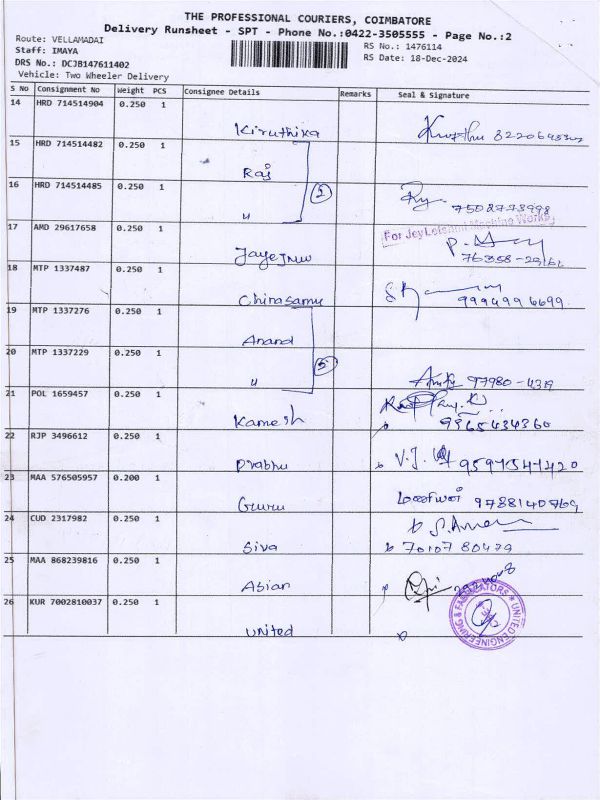 THE PROFESSIONAL COURIERS, COIMBATORE
Delivery Runsheet - SPT - Phone No.:0422-3505555 - Page No.:2
Route: VELLAMADAI
RS No.: 1476114
Staff: IMAYA
RS Date: 18-Dec-2024
DRS No.: DCJB147611402
Vehicle: Two Wheeler Delivery
S No Consignment No Weight PCS Consignee Details Remarks Seal & Signature
14 HRD 714514904 0.250 1
Kiruthika
15 HRD 714514482 0.250 1
Raj
16 HRD 714514485 0.250 1
" 2 7502773998
17 AMD 29617658 0.250 1
For Jay Lakshmi Machine Works
18 MTP 1337487 0.250 1
Chinasamy 9994996699
19 MTP 1337276 0.250 1
Anand
20 MTP 1337229 0.250 1
" 97980-4319
21 POL 1659457 0.250 1
Kamesh 9965434360
22 RJP 3496612 0.250 1
Prabhu V.J. 9597541420
23 MAA 576505957 0.200 1
Guru மணியன் 9788140769
24 CUD 2317982 0.250 1
Siva 70107 80479
25 MAA 868239816 0.250 1
Asian
26 KUR 7002810037 0.250 1
United
UNITED ENGINEERING & FABRICATORS